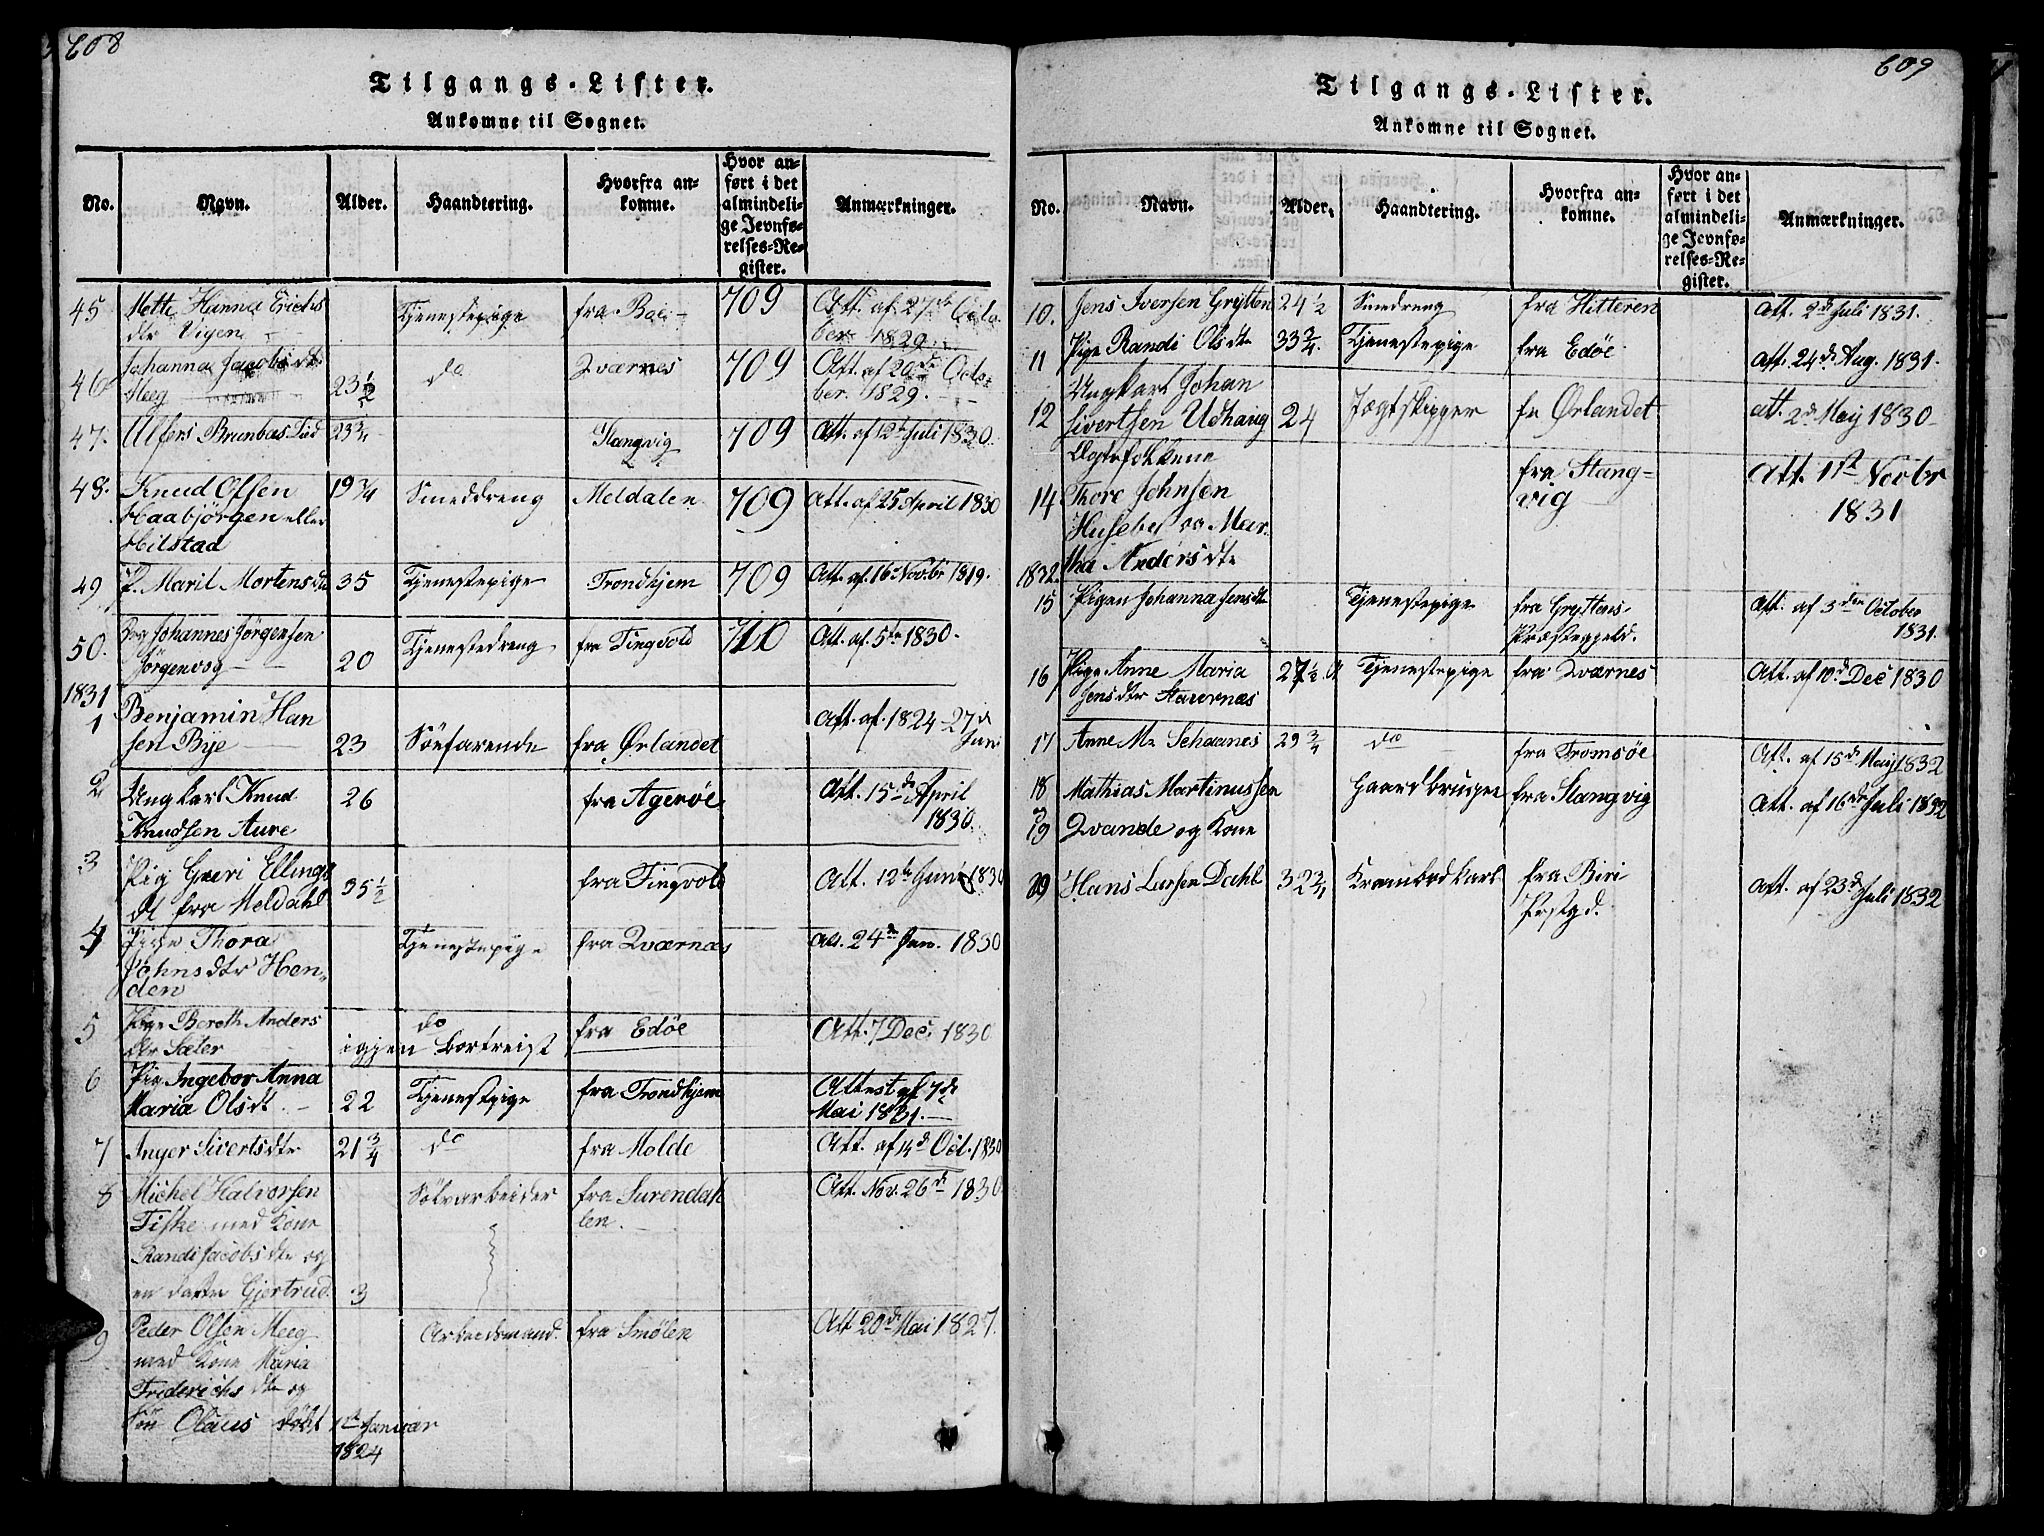 608
Tilgangs-Lister.
Ankomne til Sognet.
No. Navn. Alder. Haandtering. Hvorfra an-
komne. Hvor an-
ført i det
almindeli-
ge Jevnfø-
relses-Re-
gister. Anmærkninger.
45 Mette Hanna Erichs
dtr Vigen Tjenestepige fra Boe 709 Att. af 27de Octo
ber 1829
46 Johanna Jacobsdtr
Meeg 23½ do Qværnes 709 Att. af 20de Octo
ber. 1829.
47. 23¾ Stangvig 709 Att. af 12te Juli 1830.
48. Knud Olsen
Haabjörgen eller
Hilstad 19¾ Smeddreng Meldalen 709 Att. af 25 April 1830
49 P. Marit Mortensdtr 35 Tjenestepige Trondhjem 709 Att. af 16 Novbr 1819.
50. Johannes Jörgensen
Jörgenvog 20 Tjenestedreng fra Tingvold 710 Att. af 5te 1830.
1831
1 Benjamin Han
sen Bye 23 Söefarende fra Ørlandet Att. af. 1824 27de
Juni
2 Ungkarl Knud
Knudsen Aure 26 fra Agerøe Att. 15de April
1830.
3 Pig Guri Ellings
dt fra Meldahl 35½ fra Tingvold Att. 12te Juni 1830
4 Pige Thora
Johnsdtr Hen-
den Tjenestepige fra Qværnæs Att. 24de Jan. 1830
5 Pige Bereth Anders
dtr Sæter do
igjen bortreist fra Edöe Att. 7 Dec. 1830
6 Pig Ingebor Anna
Maria Olsdt. 22 Tjenestpige fra Trondhjem Attest af 7de
Mai 1831.
7 Inger Sivertsdtr 21¾ do fra Molde Att. af 4de Oct. 1830
8 Michel Halvorsen
Fiske med Kone
Randi Jacobsdtr og
en datter Gjertrud. 3 Sölvarbeider fra Surendah
len. Att. Nov. 26de 1830
9 Peder Olsen Meeg
med Kone Maria
Friderichsdtr og
Sön Olaus födt 1ste Januar
1824 Arbeidsmand. fra Smölen Att 20de Mai 1827.
609
Tilgangs-Lister.
Ankomne til Sognet.
No. Navn. Alder. Haandtering. Hvorfra an-
komne. Hvor an-
ført i det
almindeli-
ge Jevnfø-
relses-Re-
gister. Anmærkninger.
10. Jens Iversen Grytten 24½ Smedreng fra Hitteren Att. 2de Juli 1831.
11 Pige Randi Olsdtr 33¾. Tjenestepige fra Edöe Att. 24de Aug. 1831.
12 Ungkarl Johan
Sivertsen Udhaug 24 Jagtskipper fra Ørlandet att. 2de Maj 1830
14 Ægtefolkene
Thore Johnsen
Husebye og Mar-
tha Andersdtr fra Stang-
vig Att. 11te Novbr
1831
1832.
15 Pigen Johanna Jensdtr Tjenestepige fra Gryttens
Præstegjeld. Att. af 3die October
1831.
16 Pige Anne Maria
Jensdtr Stavernæs 27½ A Tjenestepige fra Qværnes Att. af 10de Dec 1830
17 Anne M. 29¾ do fra Tromsöe Att. af 15de Maj 1832
18 Mathias Martinussen
19 Qvande og Kone Gaardbruger fra Stangvig Att. af 16de Juli 1832
20 Hans Larsen Dahl 32¾ Krambodkarl fra Biri
Prstgd. Att. af 23de Juli 1832